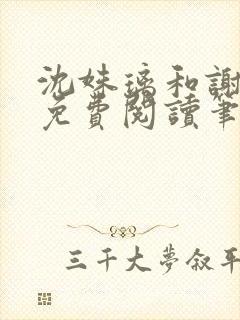 沈妹璃和謝
免費閱讀筆
三千大夢叙平